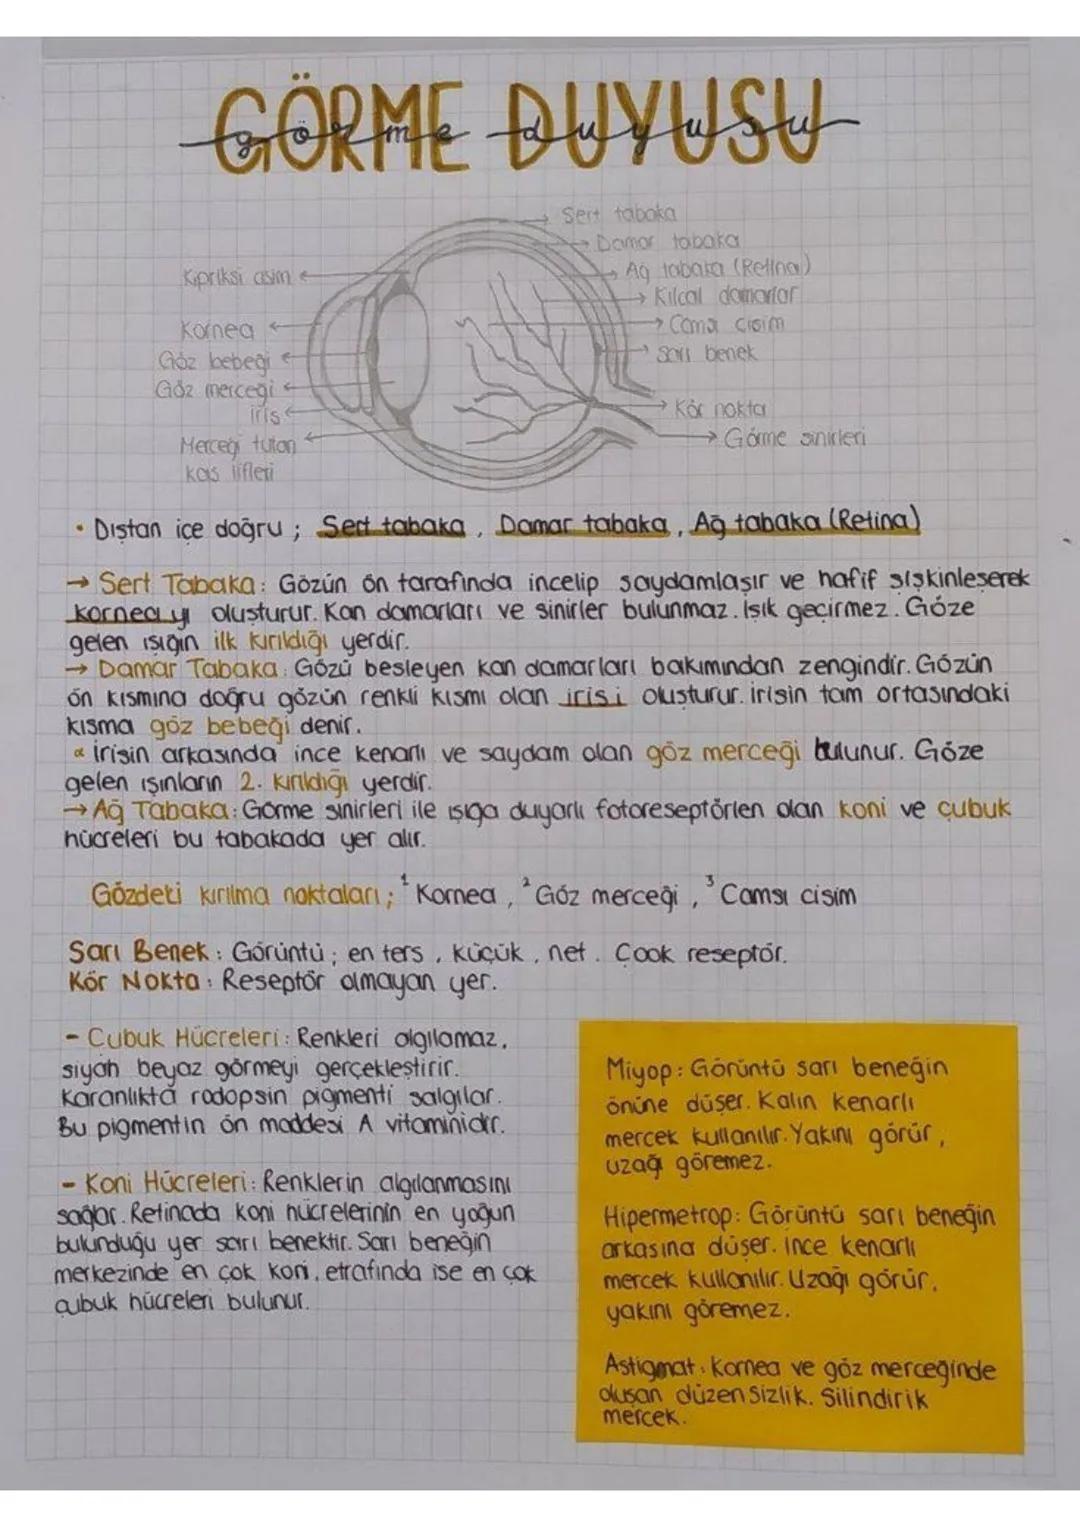 GÖRME DUYUSU
görme duyusu
Sert tabaka
Damar tabaka
Ağ tabaka (Retina)
Kılcal damarlar
Camsı cisim
Sarı benek
Kör nokta
Görme sinirleri
Kipriksi cisim
Kornea
Göz bebeği
Göz merceği
İris
Merceği tutan
kas lifleri
• Dıştan içe doğru ; Sert tabaka , Damar tabaka , Ağ tabaka (Retina)
→ Sert Tabaka : Gözün ön tarafında incelip saydamlaşır ve hafif şişkinleşerek
kornea yı oluşturur. Kan damarları ve sinirler bulunmaz. Işık geçirmez. Göze
gelen ışığın ilk kırıldığı yerdir.
→ Damar Tabaka : Gözü besleyen kan damarları bakımından zengindir. Gözün
ön kısmına doğru gözün renkli kısmı olan irisi oluşturur. İrisin tam ortasındaki
kısma göz bebeği denir.
∝ İrisin arkasında ince kenarlı ve saydam olan göz merceği bulunur. Göze
gelen ışınların 2. kırıldığı yerdir.
→ Ağ Tabaka : Görme sinirleri ile ışığa duyarlı fotoreseptörlen olan koni ve çubuk
hücreleri bu tabakada yer alır.
Gözdeki kırılma noktaları ; ¹ Kornea , ² Göz merceği , ³ Camsı cisim
Sarı Benek : Görüntü ; en ters , küçük , net . Çook reseptör.
Kör Nokta : Reseptör olmayan yer.
- Çubuk Hücreleri : Renkleri algılamaz,
siyah beyaz görmeyi gerçekleştirir.
Karanlıkta rodopsin pigmenti salgılar.
Bu pigmentin ön maddesi A vitaminidir.
- Koni Hücreleri : Renklerin algılanmasını
sağlar. Retinada koni hücrelerinin en yoğun
bulunduğu yer sarı benektir. Sarı beneğin
merkezinde en çok koni, etrafında ise en çok
çubuk hücreleri bulunur.
Miyop : Görüntü sarı beneğin
önüne düşer. Kalın kenarlı
mercek kullanılır. Yakını görür,
uzağı göremez.
Hipermetrop : Görüntü sarı beneğin
arkasına düşer. İnce kenarlı
mercek kullanılır. Uzağı görür,
yakını göremez.
Astigmat : Kornea ve göz merceğinde
oluşan düzensizlik. Silindirik
mercek.